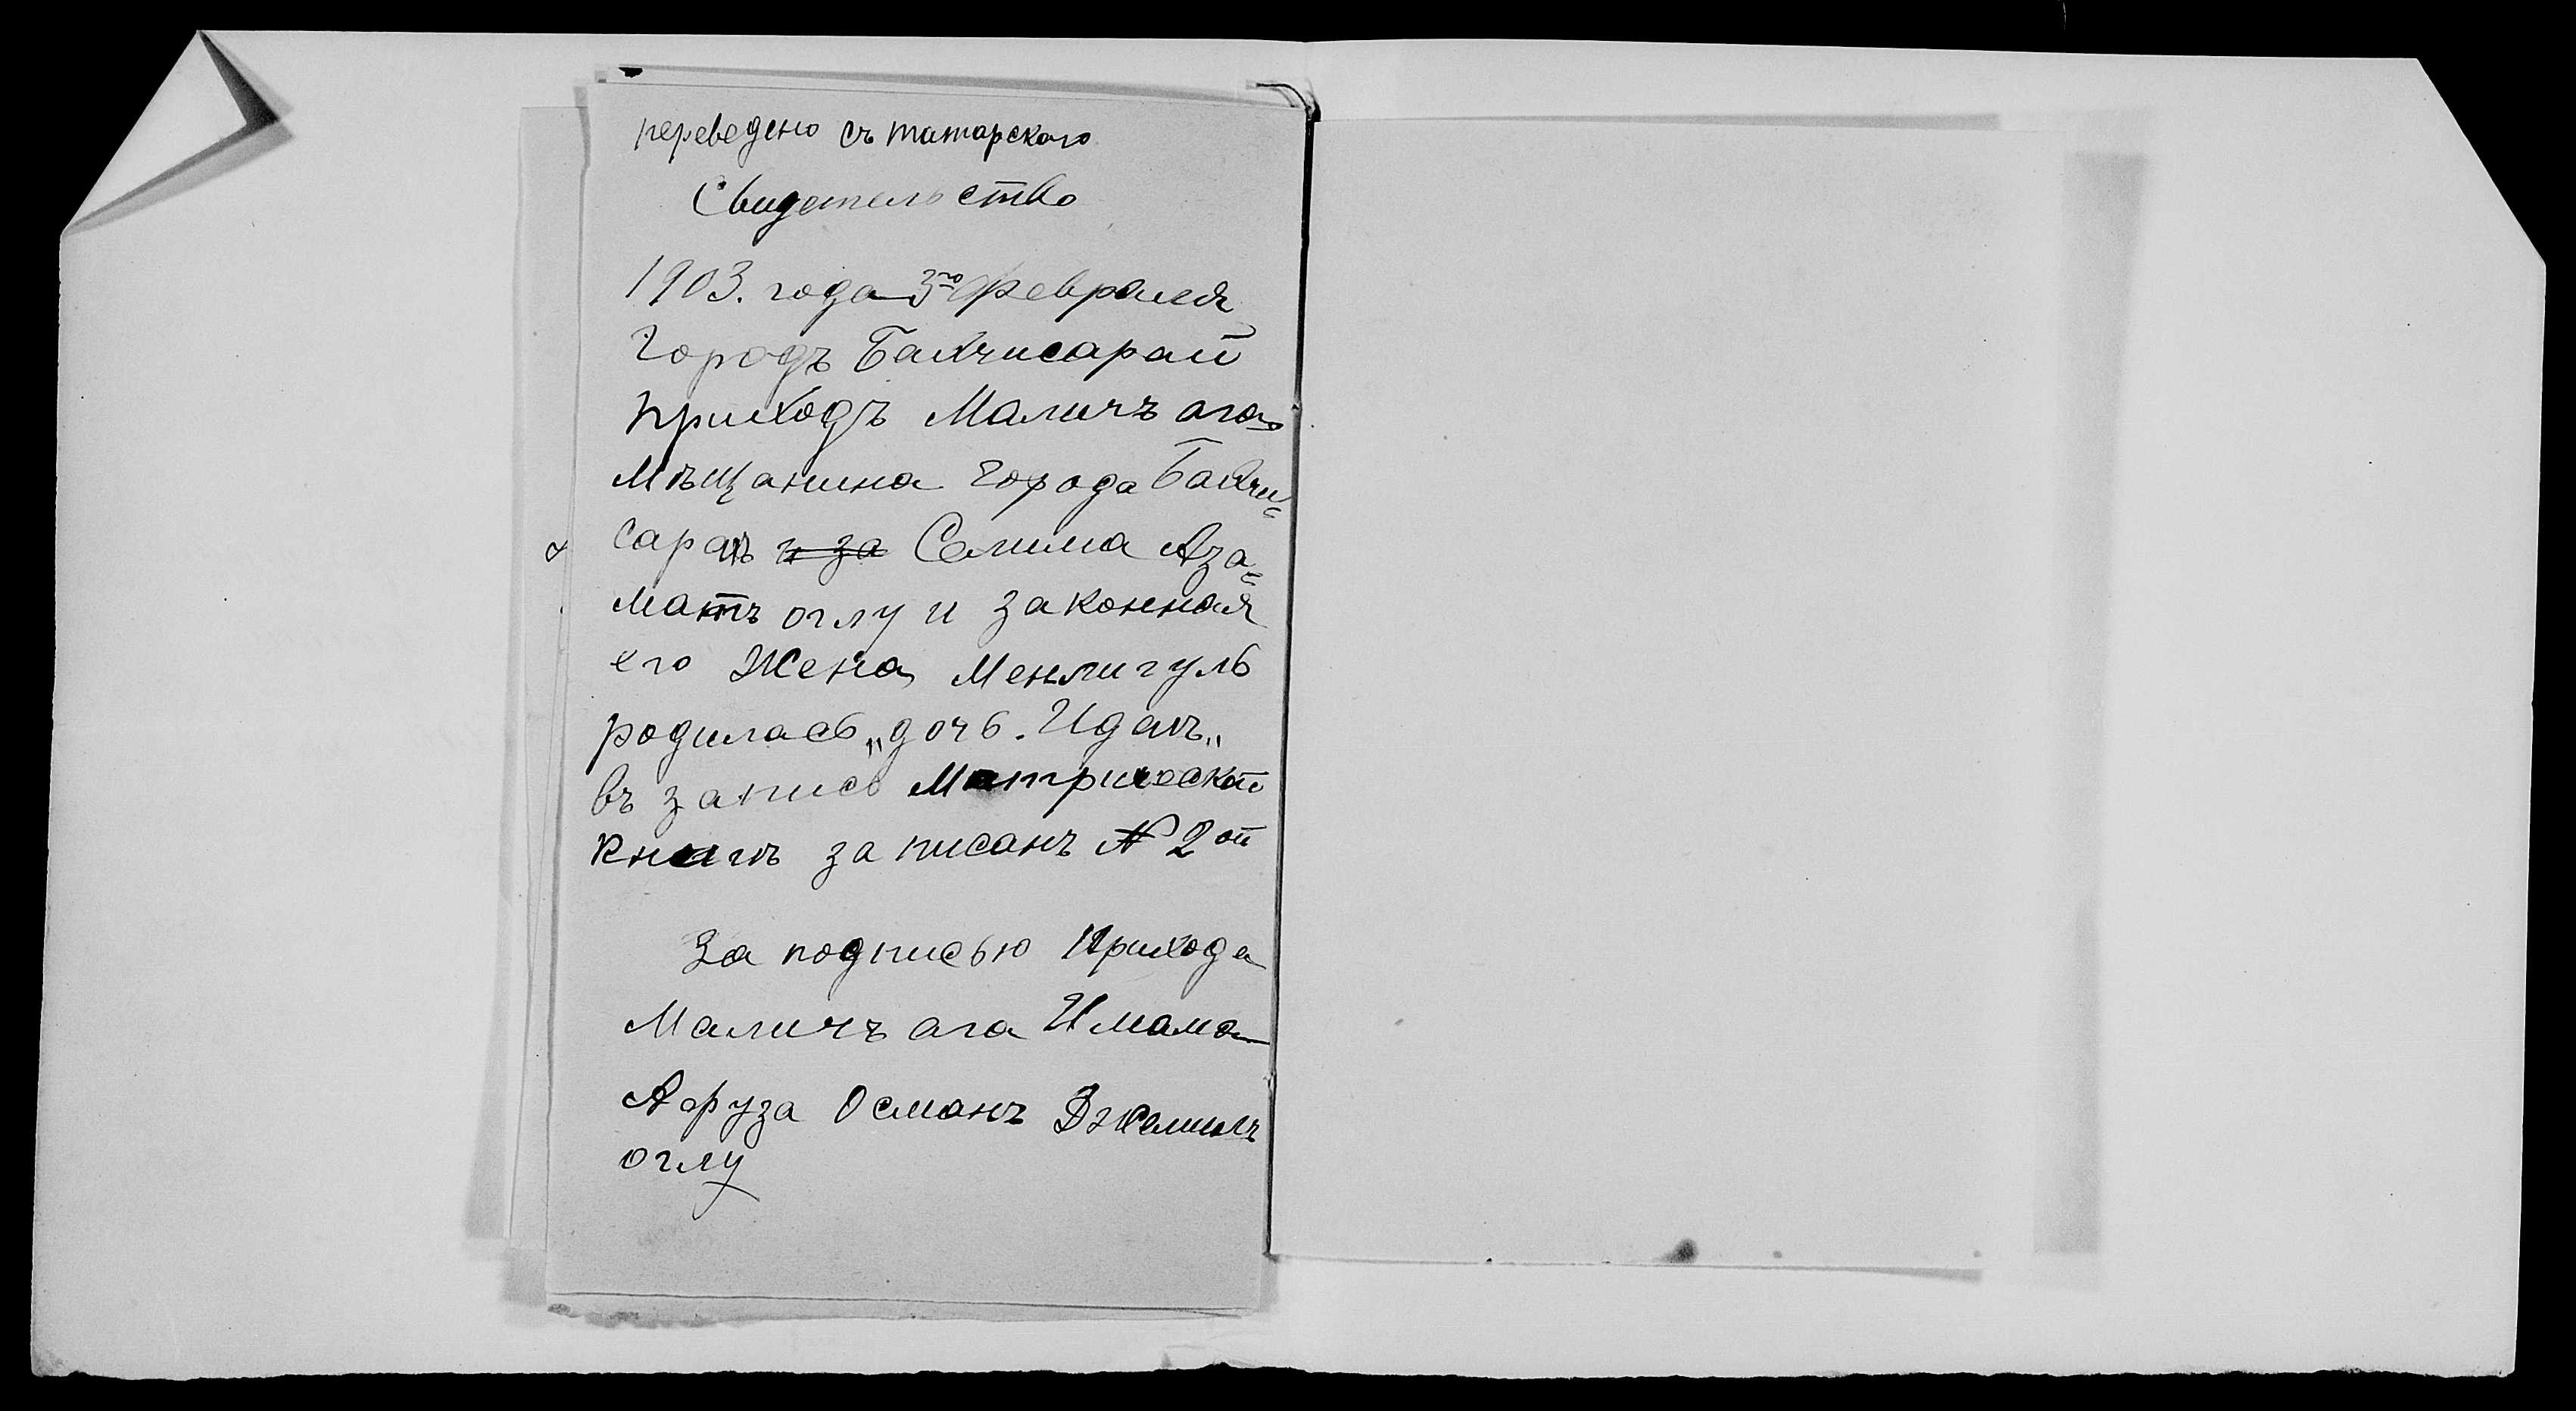 переведено съ татарского
Свидетельство
1903. года 3го февраля
Городъ Бахчисарай
приходъ Маличъ ага
мѣщанина города Бахчи=
сараѣ и за Селима Аза=
матъ оглу и законная
его Жена Менлигуль
родилась „дочь. Идаѣ„
въ запись Метрической
книгѣ записанъ № 2ой
За подписью Прихода
Маличъ ага Имама
Афуза Османъ Джелилъ
оглу